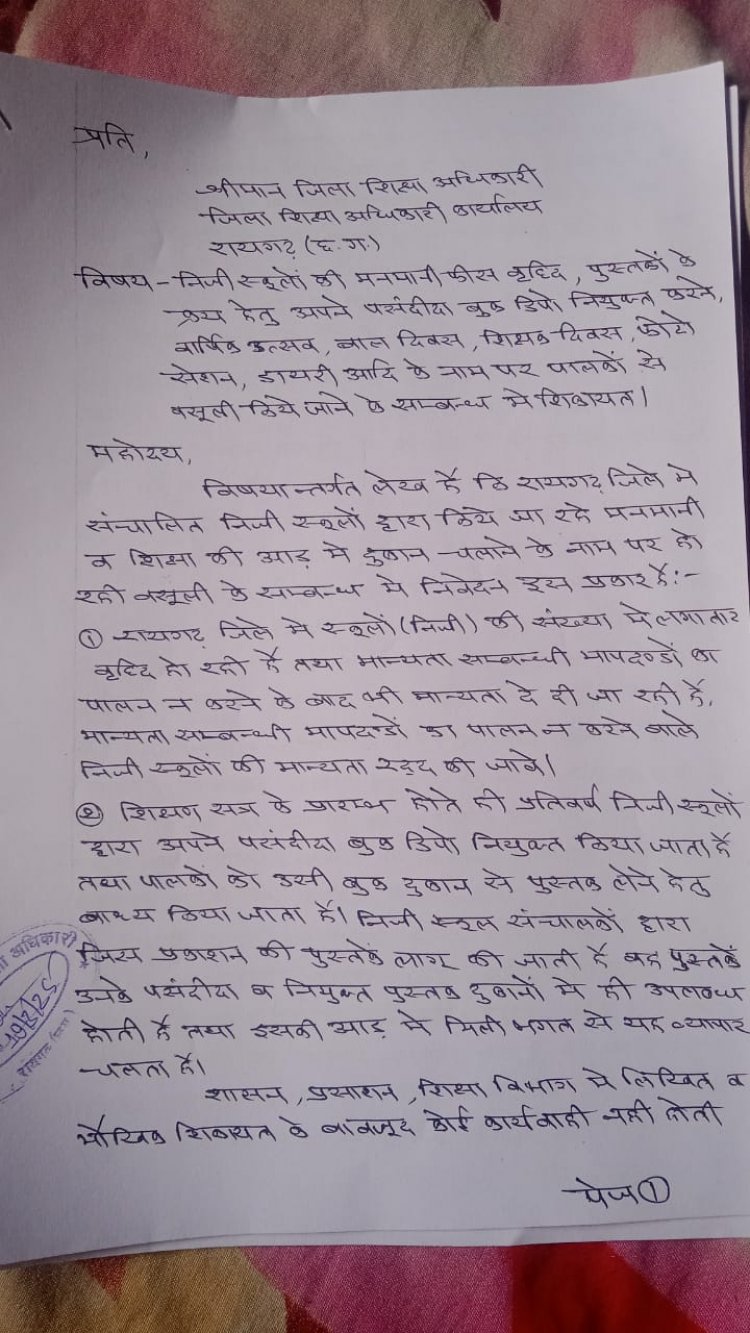 प्रति,
श्रीमान जिला शिक्षा अधिकारी
जिला शिक्षा अधिकारी कार्यालय
रायगढ़ (छ.ग.)
विषय - निजी स्कूलों की मनमानी फीस वृद्धि, पुस्तकों के
क्रय हेतु अपने पसंदीदा बुक डिपो नियुक्त करने,
वार्षिक उत्सव, बाल दिवस, शिक्षक दिवस, फोटो
सेशन, डायरी आदि के नाम पर पालकों से
वसूली किये जाने के सम्बन्ध में शिकायत।
महोदय,
विषयान्तर्गत लेख है कि रायगढ़ जिले में
संचालित निजी स्कूलों द्वारा किये जा रहे मनमानी
व शिक्षा की आड़ में दुकान चलाने के नाम पर हो
रही वसूली के सम्बन्ध में निवेदन इस प्रकार है:-
① रायगढ़ जिले में स्कूलों (निजी) की संख्या में लगातार
वृद्धि हो रही है तथा मान्यता सम्बन्धी मापदण्डों का
पालन न करने के बाद भी मान्यता दे दी जा रही है,
मान्यता सम्बन्धी मापदण्डों का पालन न करने वाले
निजी स्कूलों की मान्यता रद्द की जावे।
② शिक्षण सत्र के प्रारम्भ होते ही प्रतिवर्ष निजी स्कूलों
द्वारा अपने पसंदीदा बुक डिपो नियुक्त किया जाता है
तथा पालकों को उसी बुक दुकान से पुस्तक लेने हेतु
बाध्य किया जाता है। निजी स्कूल संचालकों द्वारा
जिस प्रकाशन की पुस्तकें लागू की जाती है वह पुस्तकें
उनके पसंदीदा व नियुक्त पुस्तक दुकानों में ही उपलब्ध
होती है तथा इसकी आड़ में मिली भगत से यह व्यापार
चलता है।
शासन, प्रसाशन, शिक्षा विभाग में लिखित व
मौखिक शिकायत के बावजूद कोई कार्यवाही नही होती
पेज ①
अधिकारी
रायगढ़